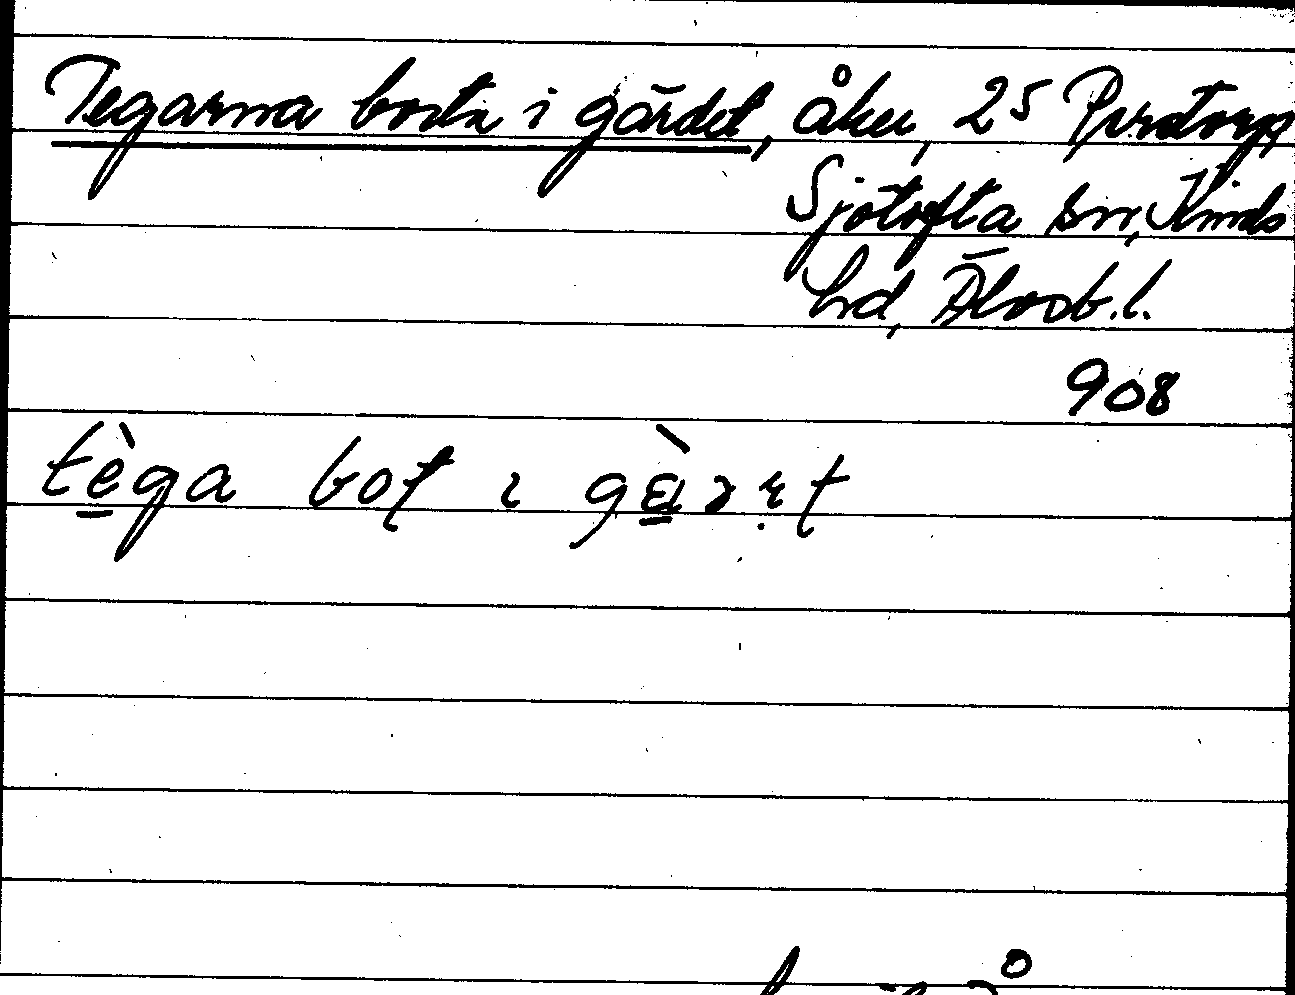 Tegarna borta i gärdet, åker, 25 Prestorp
Sjötofta sn, Kinds
hd, Älvsb. l.
908
tè̱ga bot ı gɛ̱̀ɜrt